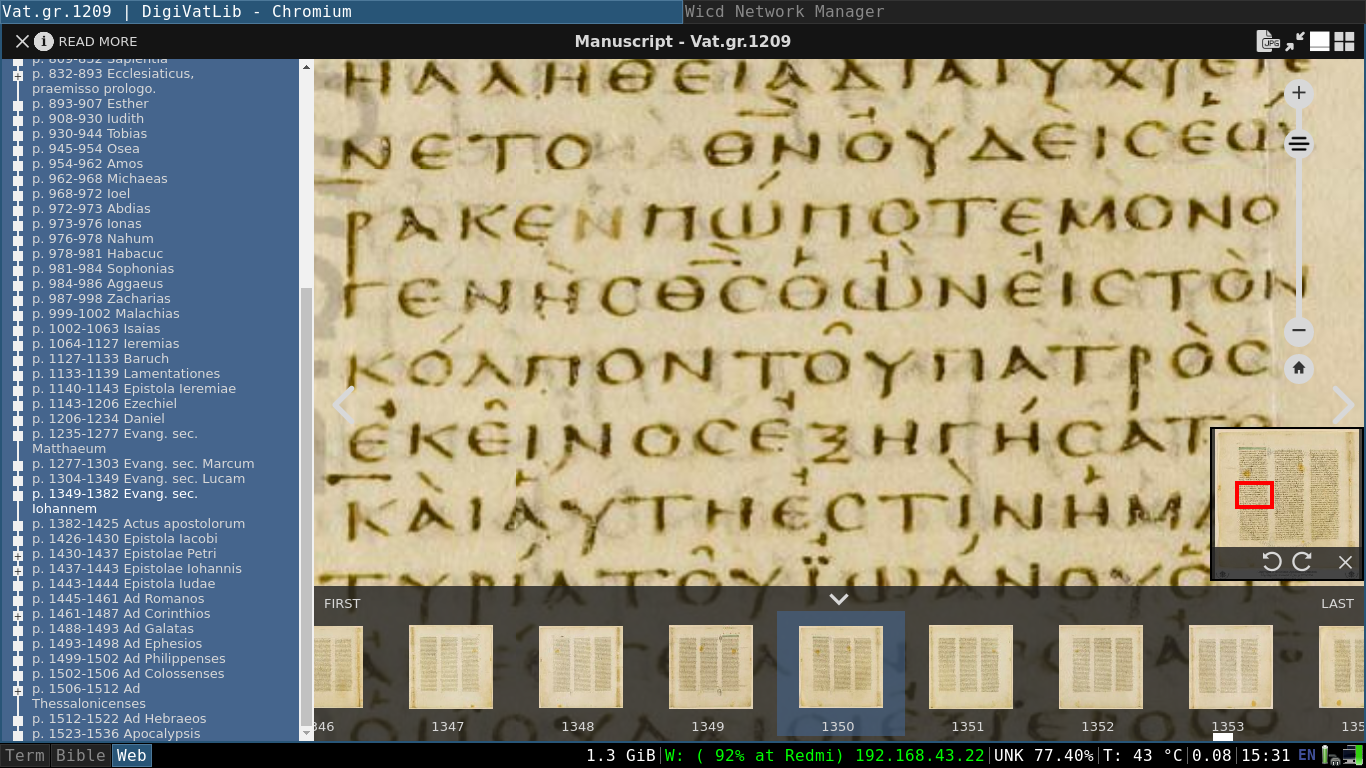 Vat.gr.1209 | DigiVatLib - Chromium
Wicd Network Manager
READ MORE
Manuscript - Vat.gr.1209
JPG
p. 809-832 Sapientia
p. 832-893 Ecclesiaticus,
praemisso prologo.
p. 893-907 Esther
p. 908-930 Iudith
p. 930-944 Tobias
p. 945-954 Osea
p. 954-962 Amos
p. 962-968 Michaeas
p. 968-972 Ioel
p. 972-973 Abdias
p. 973-976 Ionas
p. 976-978 Nahum
p. 978-981 Habacuc
p. 981-984 Sophonias
p. 984-986 Aggaeus
p. 987-998 Zacharias
p. 999-1002 Malachias
p. 1002-1063 Isaias
p. 1064-1127 Ieremias
p. 1127-1133 Baruch
p. 1133-1139 Lamentationes
p. 1140-1143 Epistola Ieremiae
p. 1143-1206 Ezechiel
p. 1206-1234 Daniel
p. 1235-1277 Evang. sec.
Matthaeum
p. 1277-1303 Evang. sec. Marcum
p. 1304-1349 Evang. sec. Lucam
p. 1349-1382 Evang. sec.
Iohannem
p. 1382-1425 Actus apostolorum
p. 1426-1430 Epistola Iacobi
p. 1430-1437 Epistolae Petri
p. 1437-1443 Epistolae Iohannis
p. 1443-1444 Epistola Iudae
p. 1445-1461 Ad Romanos
p. 1461-1487 Ad Corinthios
p. 1488-1493 Ad Galatas
p. 1493-1498 Ad Ephesios
p. 1499-1502 Ad Philippenses
p. 1502-1506 Ad Colossenses
p. 1506-1512 Ad
Thessalonicenses
p. 1512-1522 Ad Hebraeos
p. 1523-1536 Apocalypsis
ΗΑΛΗΘΕΙΑΔΙΑΙΥΧΥΕΓΕ
ΝΕΤΟ ΘΝΟΥΔΕΙСΕΩ
ΡΑΚΕΝΠΩΠΟΤΕΜΟΝΟ
ΓΕΝΗСΘСΟΩΝΕΙСΤΟΝ
ΚΟΛΠΟΝΤΟΥΠΑΤΡΟС
ΕΚΕΙΝΟСΕΞΗΓΗСΑΤΟ
ΚΑΙΑΥΤΗΕСΤΙΝΗΜΑ
ΤΥΡΙΑΤΟΥΪΩΑΝΟΥΟΤΕ
FIRST
LAST
346
1347
1348
1349
1350
1351
1352
1353
135
Term Bible Web
1.3 GiB|W: ( 92% at Redmi) 192.168.43.22|UNK 77.40%|T: 43 °C|0.08|15:31 EN